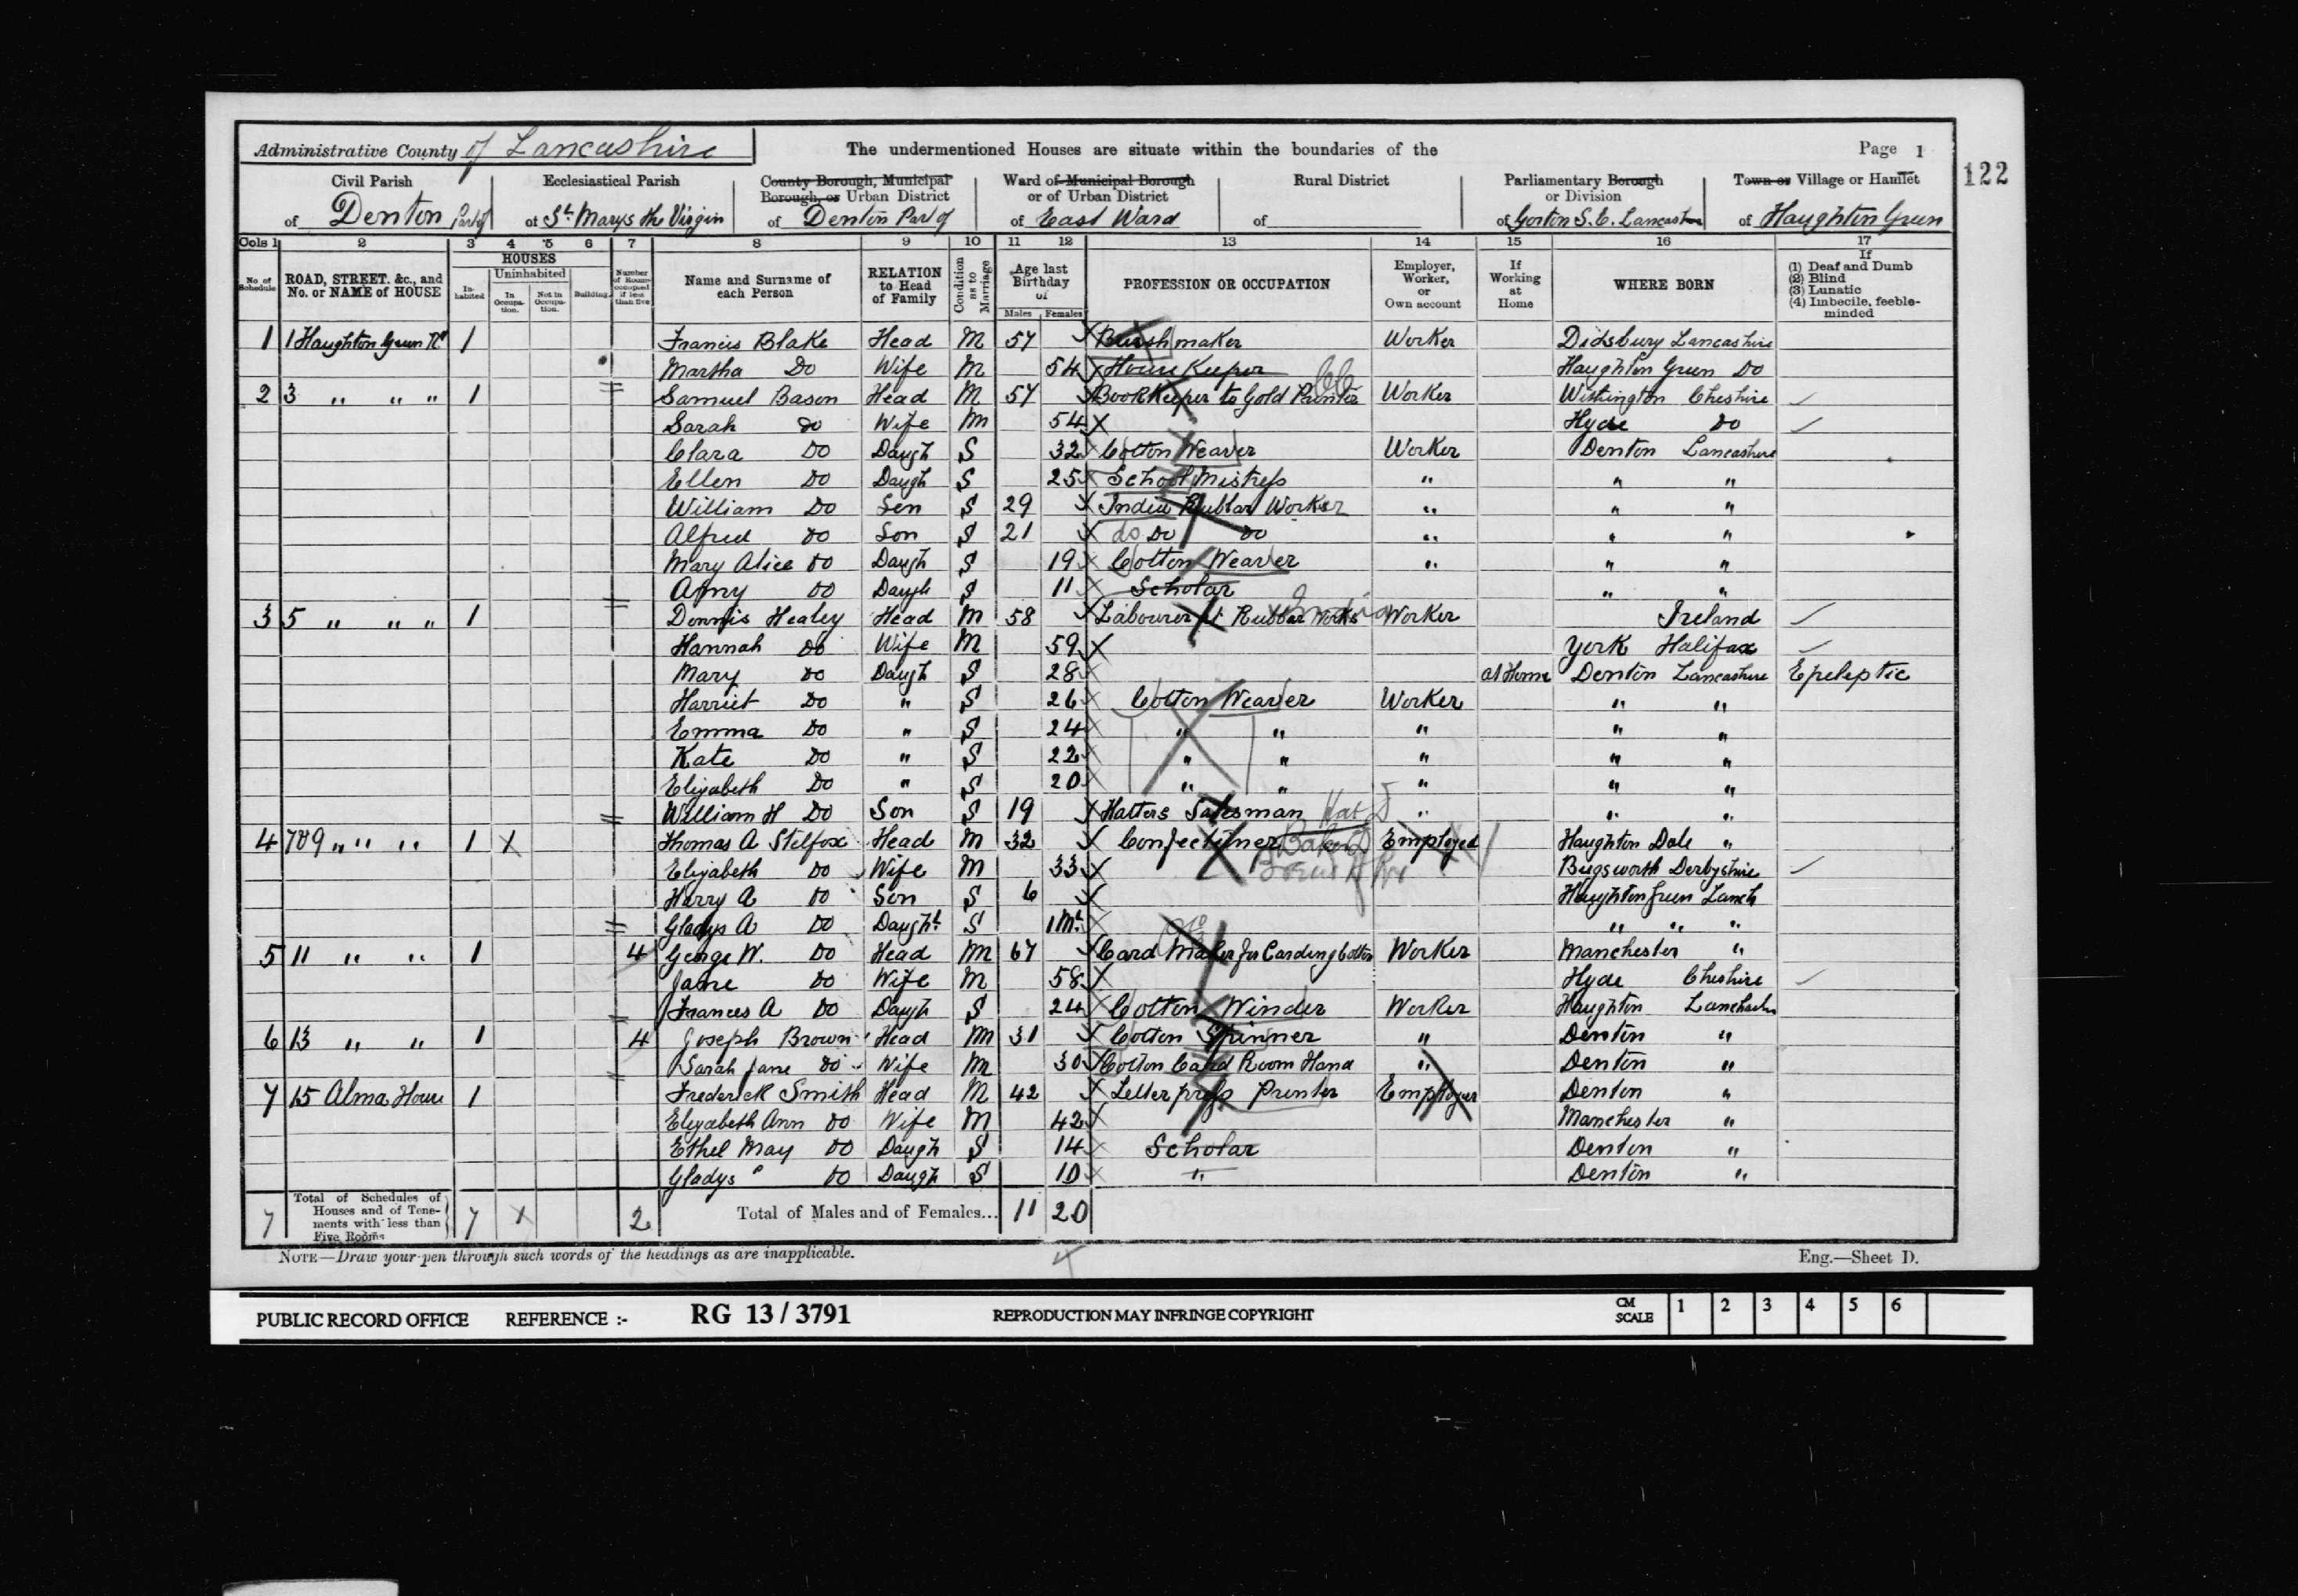 Administrative County of Lancashire The undermentioned Houses are situate within the boundaries of the Page 1
122
Civil Parish Ecclesiastical Parish County Borough, Municipal Borough, or Urban District Ward of Municipal Borough or of Urban District Rural District Parliamentary Borough or Division Town or Village or Hamlet
of Denton Part of at St. Marys the Virgin of Denton Part of of East Ward of of Gorton S.E. Lancashire of Haughton Green
Cols 1 2 3 4 5 6 7 8 9 10 11 12 13 14 15 16 17
No of Schedule ROAD, STREET, &c., and No. or NAME of HOUSE HOUSES Inhabited Uninhabited In Occupation. Not in Occupation. Building Number of Rooms occupied if less than five Name and Surname of each Person RELATION to Head of Family Condition as to Marriage Age last Birthday of Males Females PROFESSION OR OCCUPATION Employer, Worker, or Own account If Working at Home WHERE BORN If (1) Deaf and Dumb (2) Blind (3) Lunatic (4) Imbecile, feeble-minded
1 1 Haughton Green Rd 1 Francis Blake Head M 57 Brush maker Worker Didsbury Lancashire
Martha Do Wife M 54 House Keeper Haughton Green Do
2 3 " " " 1 Samuel Bason Head M 57 BookKeeper to Gold Printer Worker Withington Cheshire
Sarah Do Wife M 54 Hyde Do
Clara Do Daugh S 32 Cotton Weaver Worker Denton Lancashire
Ellen Do Daugh S 25 School Mistress " " "
William Do Son S 29 India Rubbar Worker " " "
Alfred Do Son S 21 do Do Do " " "
Mary Alice Do Daugh S 19 Cotton Weaver " " "
Amy Do Daugh S 11 Scholar " "
3 5 " " " 1 Dennis Healey Head M 58 Labourer at Rubbar Works India Worker Ireland
Hannah Do Wife M 59 York Halifax
Mary Do Daugh S 28 at Home Denton Lancashire Epeleptic
Harriet Do " S 26 Cotton Weaver Worker " "
Emma Do " S 24 " " " " "
Kate Do " S 22 " " " " "
Elizabeth Do " S 20 " " " " "
William H Do Son S 19 Hatters Salesman Hat D " " "
4 7&9 " " " 1 X Thomas A Stelfox Head M 32 Confectioner Baker D Employed Haughton Dale "
Elizabeth Do Wife M 33 Bugsworth Derbyshire
Harry A Do Son S 6 Haughton Green Lanch
Gladys A Do Daught S 1 Mt. " " "
5 11 " " 1 4 George W. Do Head M 67 Card Maker for Carding Cotton Worker Manchester "
Jane Do Wife M 58 Hyde Cheshire
Frances A Do Daugh S 24 Cotton Winder Worker Haughton
6 13 " " 1 4 Joseph Brown Head M 31 Cotton Spinner " Denton "
Sarah Jane Do Wife M 30 Cotton Card Room Hand " Denton "
7 15 Alma House 1 Frederick Smith Head M 42 Letterpress Printer Employer Denton "
Elizabeth Ann Do Wife M 42 Manchester "
Ethel May Do Daugh S 14 Scholar Denton "
Gladys " Do Daugh S 10 " Denton "
7 Total of Schedules of Houses and of Tenements with less than Five Rooms 7 X 2 Total of Males and of Females... 11 20
NOTE—Draw your pen through such words of the headings as are inapplicable. Eng.—Sheet D.
PUBLIC RECORD OFFICE REFERENCE :- RG 13 / 3791 REPRODUCTION MAY INFRINGE COPYRIGHT CM SCALE 1 2 3 4 5 6